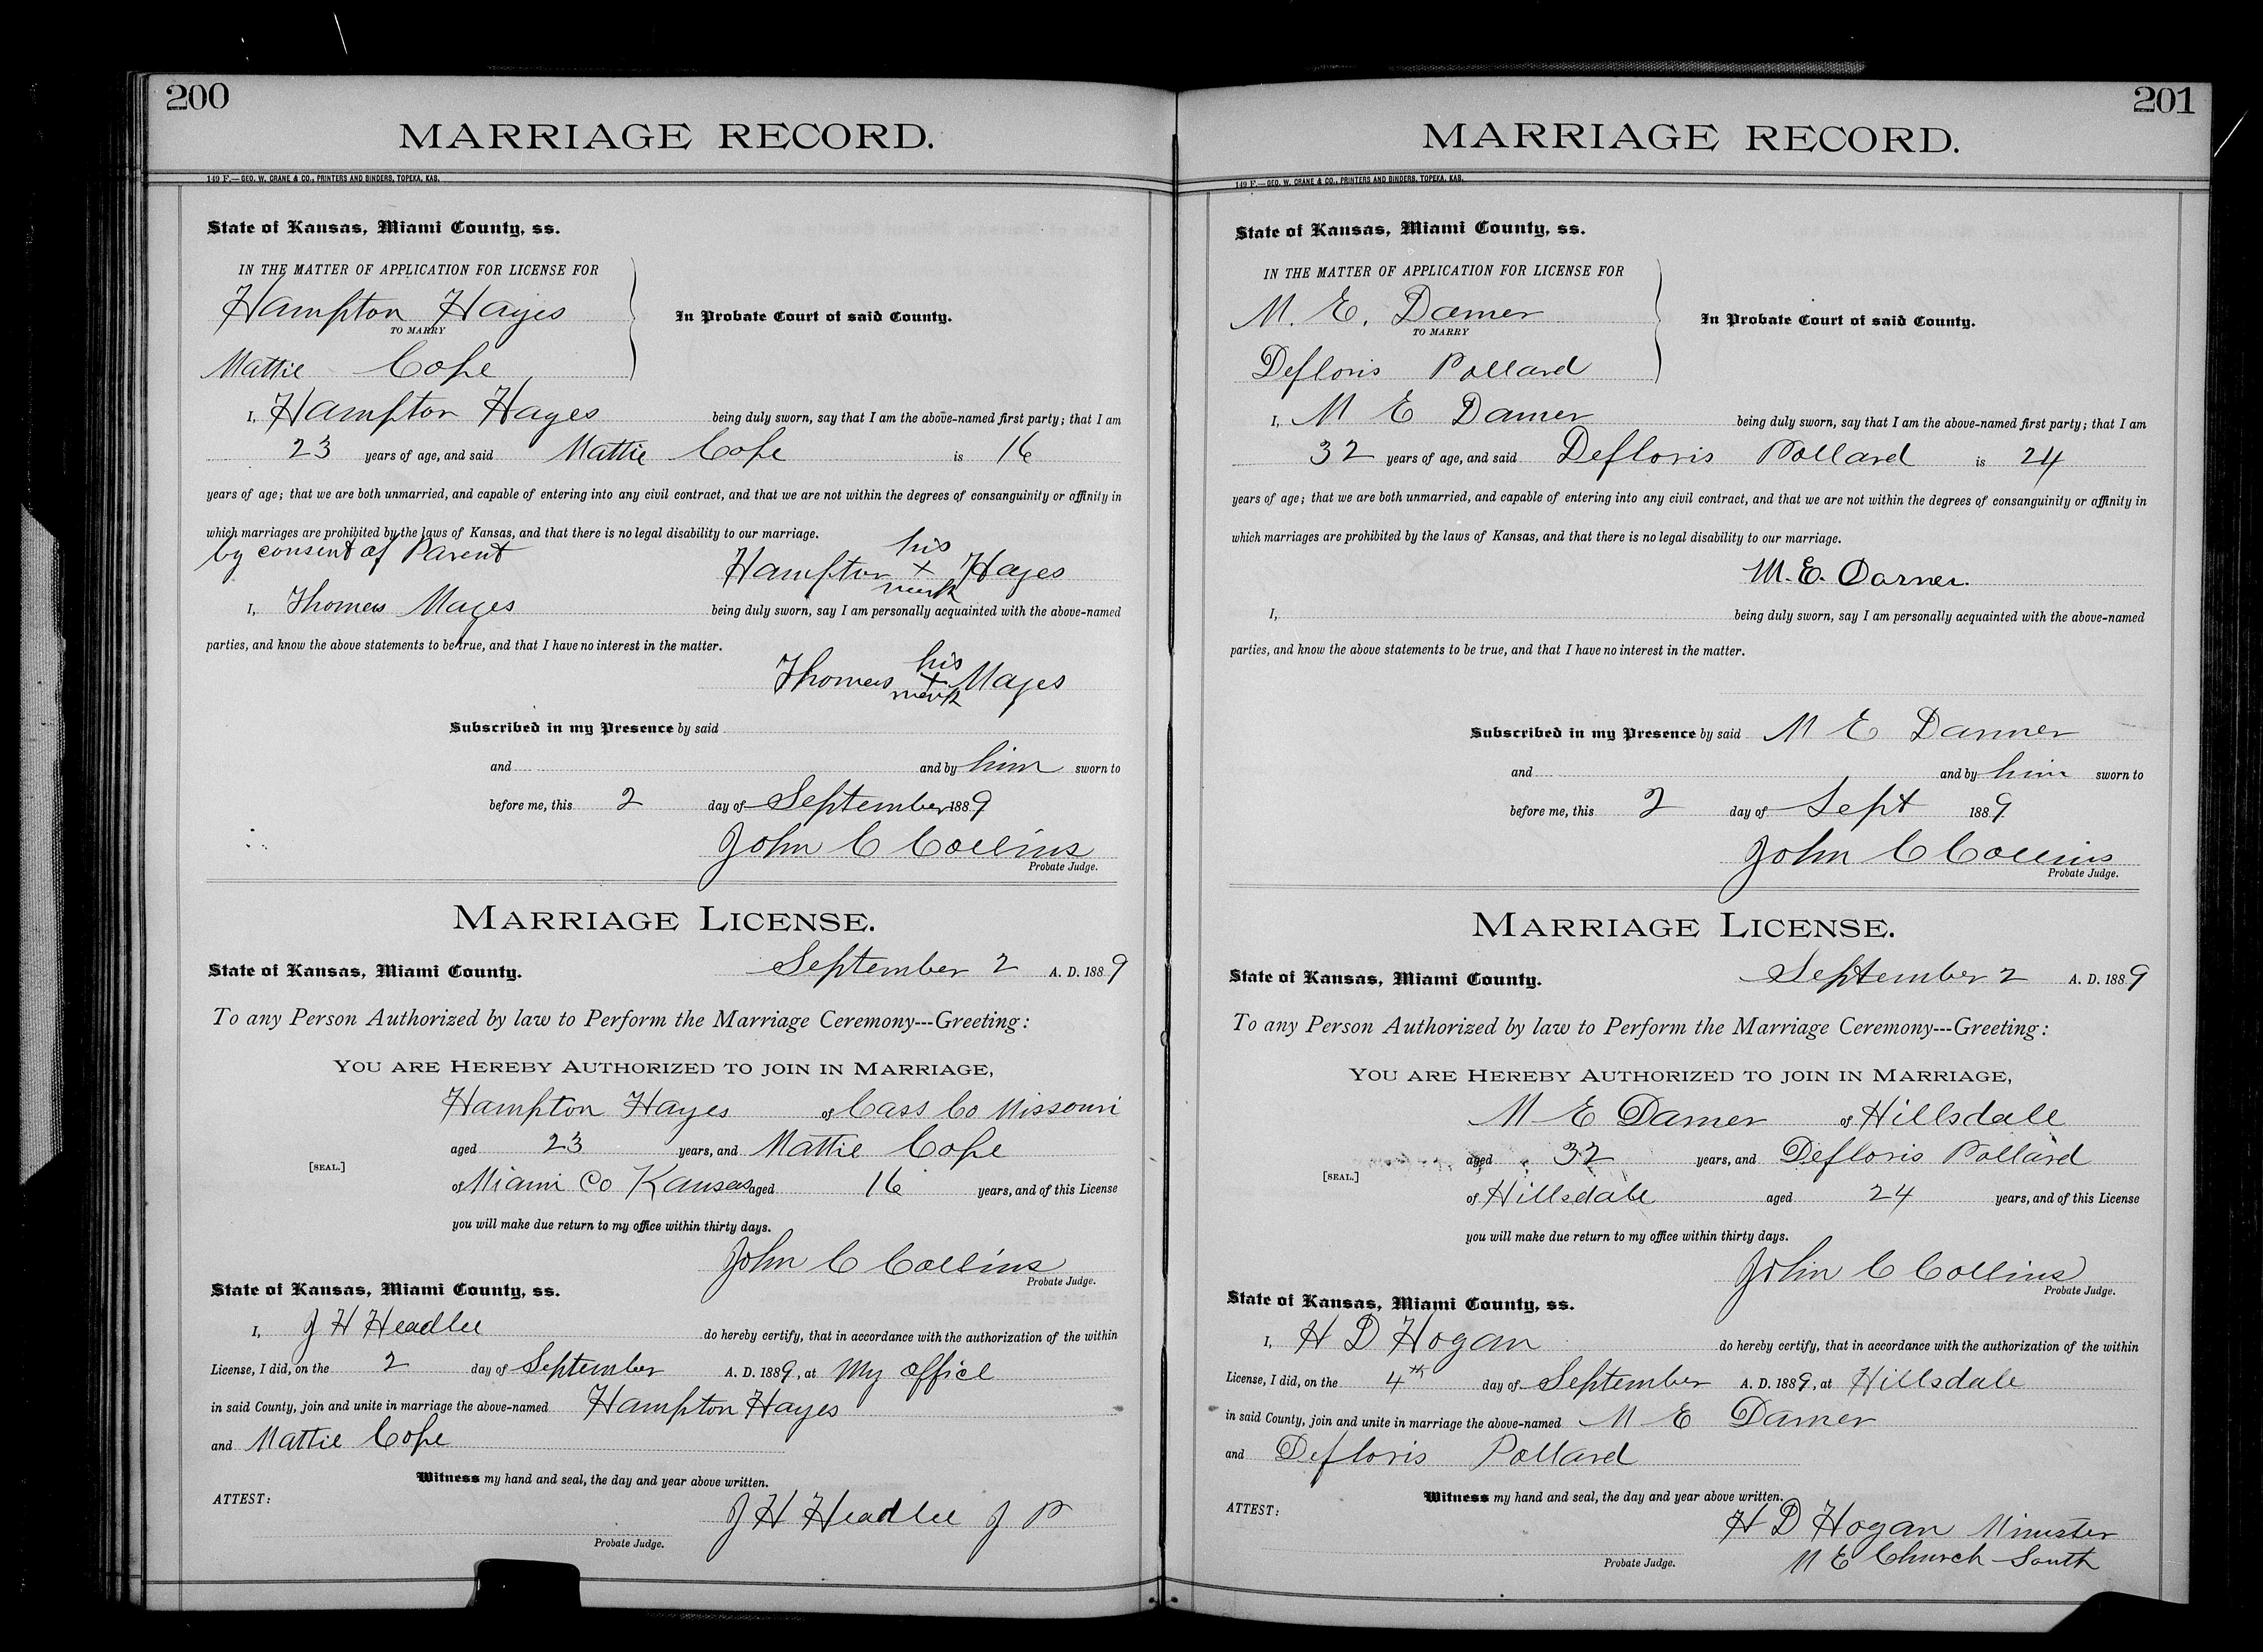 200
MARRIAGE RECORD.
149 F.—GEO. W. CRANE & CO., PRINTERS AND BINDERS, TOPEKA, KAS.
State of Kansas, Miami County, ss.
IN THE MATTER OF APPLICATION FOR LICENSE FOR
Hampton Hayes
TO MARRY
In Probate Court of said County.
Mattie Cope
I, Hampton Hayes being duly sworn, say that I am the above-named first party; that I am
23 years of age, and said Mattie Cope is 16
years of age; that we are both unmarried, and capable of entering into any civil contract, and that we are not within the degrees of consanguinity or affinity in
which marriages are prohibited by the laws of Kansas, and that there is no legal disability to our marriage.
by consent of Parent
his
Hampton x Hayes
mark
I, Thomas Mayes being duly sworn, say I am personally acquainted with the above-named
parties, and know the above statements to be true, and that I have no interest in the matter.
his
Thomas x Mayes
mark
Subscribed in my Presence by said
and and by him sworn to
before me, this 2 day of September 1889
John C Collins
Probate Judge.
MARRIAGE LICENSE.
State of Kansas, Miami County. September 2 A. D. 1889
To any Person Authorized by law to Perform the Marriage Ceremony---Greeting:
YOU ARE HEREBY AUTHORIZED TO JOIN IN MARRIAGE,
Hampton Hayes of Cass Co Missouri
aged 23 years, and Mattie Cope
[SEAL.]
of Miami Co Kansas aged 16 years, and of this License
you will make due return to my office within thirty days.
John C Collins
Probate Judge.
State of Kansas, Miami County, ss.
I, J H Headlee do hereby certify, that in accordance with the authorization of the within
License, I did, on the 2 day of September A. D. 1889, at My office
in said County, join and unite in marriage the above-named Hampton Hayes
and Mattie Cope
Witness my hand and seal, the day and year above written.
ATTEST:
J H Headlee J P
Probate Judge.
201
MARRIAGE RECORD.
149 F.—GEO. W. CRANE & CO., PRINTERS AND BINDERS, TOPEKA, KAS.
State of Kansas, Miami County, ss.
IN THE MATTER OF APPLICATION FOR LICENSE FOR
M. E. Damer
TO MARRY
In Probate Court of said County.
Defloris Pollard
I, M E Damer being duly sworn, say that I am the above-named first party; that I am
32 years of age, and said Defloris Pollard is 24
years of age; that we are both unmarried, and capable of entering into any civil contract, and that we are not within the degrees of consanguinity or affinity in
which marriages are prohibited by the laws of Kansas, and that there is no legal disability to our marriage.
M. E. Darner.
I, being duly sworn, say I am personally acquainted with the above-named
parties, and know the above statements to be true, and that I have no interest in the matter.
Subscribed in my Presence by said M E Danner
and and by him sworn to
before me, this 2 day of Sept 1889
John C Collins
Probate Judge.
MARRIAGE LICENSE.
State of Kansas, Miami County. September 2 A. D. 1889
To any Person Authorized by law to Perform the Marriage Ceremony---Greeting:
YOU ARE HEREBY AUTHORIZED TO JOIN IN MARRIAGE,
M E Damer of Hillsdale
aged 32 years, and Defloris Pollard
[SEAL.]
of Hillsdale aged 24 years, and of this License
you will make due return to my office within thirty days.
John C Collins
Probate Judge.
State of Kansas, Miami County, ss.
I, H D Hogan do hereby certify, that in accordance with the authorization of the within
License, I did, on the 4th day of September A. D. 1889, at Hillsdale
in said County, join and unite in marriage the above-named M E Damer
and Defloris Pollard
Witness my hand and seal, the day and year above written.
ATTEST:
H D Hogan Minister
Probate Judge.
M E Church South